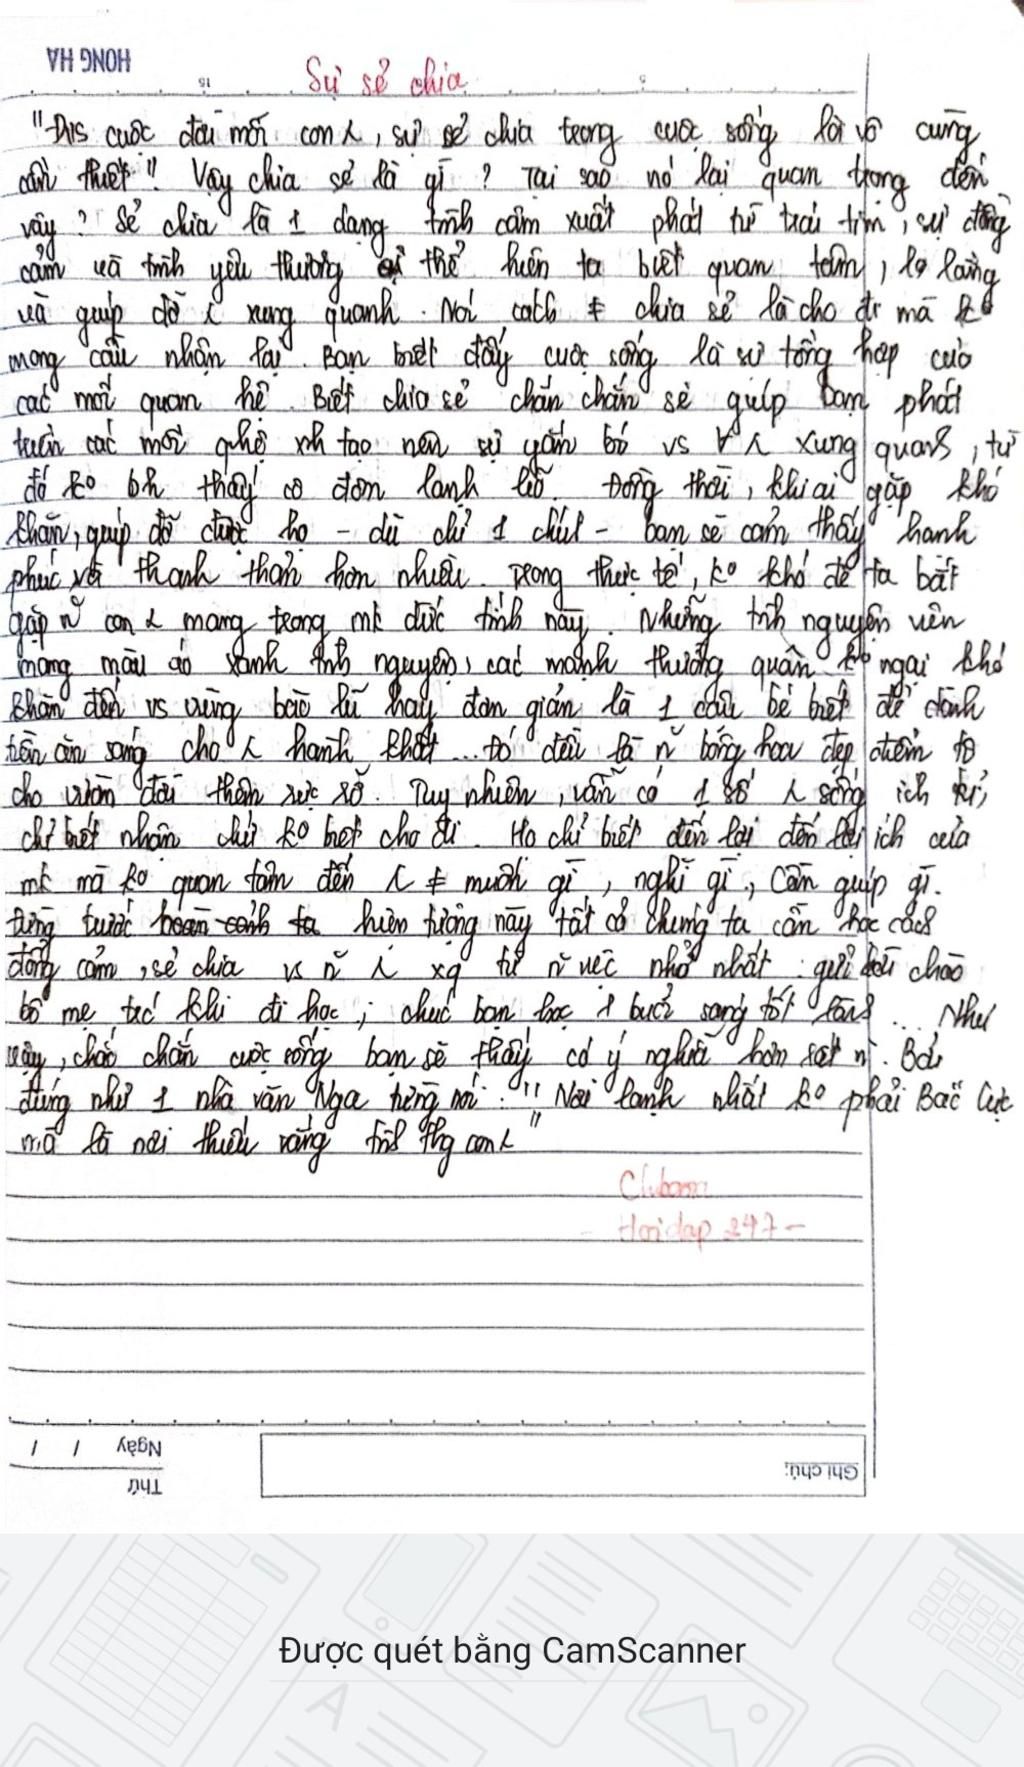 HONG HA
Sự sẻ chia
"Đvs cuộc đời mỗi con λ, sự sẻ chia trong cuộc sống là vô cùng
cần thiết". Vậy chia sẻ là gì? Tại sao nó lại quan trọng đến
vậy? Sẻ chia là 1 dạng tình cảm xuất phát từ trái tim, sự đồng
cảm và tình yêu thương thể hiện ta biết quan tâm, lo lắng
và giúp đỡ λ xung quanh. Nói cách ≠ chia sẻ là cho đi mà ko
mong cầu nhận lại. Bạn biết đấy cuộc sống là sự tổng hợp của
các mối quan hệ. Biết chia sẻ chắn chắn sẽ giúp bạn phát
triển các mối qhệ xh tạo nên sự gắn bó vs ∀ λ xung quanh, từ
đó ko bh thấy cô đơn lạnh lẽo. Đồng thời, khi ai gặp khó
khăn, giúp đỡ được họ - dù chỉ 1 chút - bạn sẽ cảm thấy hạnh
phúc và thanh thản hơn nhiều. Trong thực tế, ko khó để ta bắt
gặp ~~n con λ mang trong mk đức tính này. Những tình nguyện viên
mang màu áo xanh tình nguyện, các mạnh thường quân ko ngại khó
khăn đến vs vùng bão lũ hay đơn giản là 1 cậu bé biết để dành
tiền ăn sáng cho λ hành khất... đó đều là ~~n bông hoa đẹp điểm tô
cho vườn đời thêm rực rỡ. Tuy nhiên, vẫn có 1 số λ sống ích kỉ,
chỉ biết nhận chứ ko biết cho đi. Họ chỉ biết đến lợi đến lợi ích của
mk mà ko quan tâm đến λ ≠ muốn gì, nghĩ gì, cần giúp gì.
Đứng trước hoàn cảnh ta hiện tượng này tất cả chúng ta cần học cách
đồng cảm, sẻ chia vs ~~n λ xq từ ~~n việc nhỏ nhất: gửi lời chào
bố mẹ trc khi đi học; chúc bạn học 1 buổi sáng tốt lành... Như
vậy, chắc chắn cuộc sống bạn sẽ thấy có ý nghĩa hơn rất n`. Bởi
đúng như 1 nhà văn Nga từng nói: "Nơi lạnh nhất ko phải Bắc Cực
mà là nơi thiếu vắng tình thg con λ"
Hoidap 247
Ghi chú:
Ngày / /
Thứ
Được quét bằng CamScanner